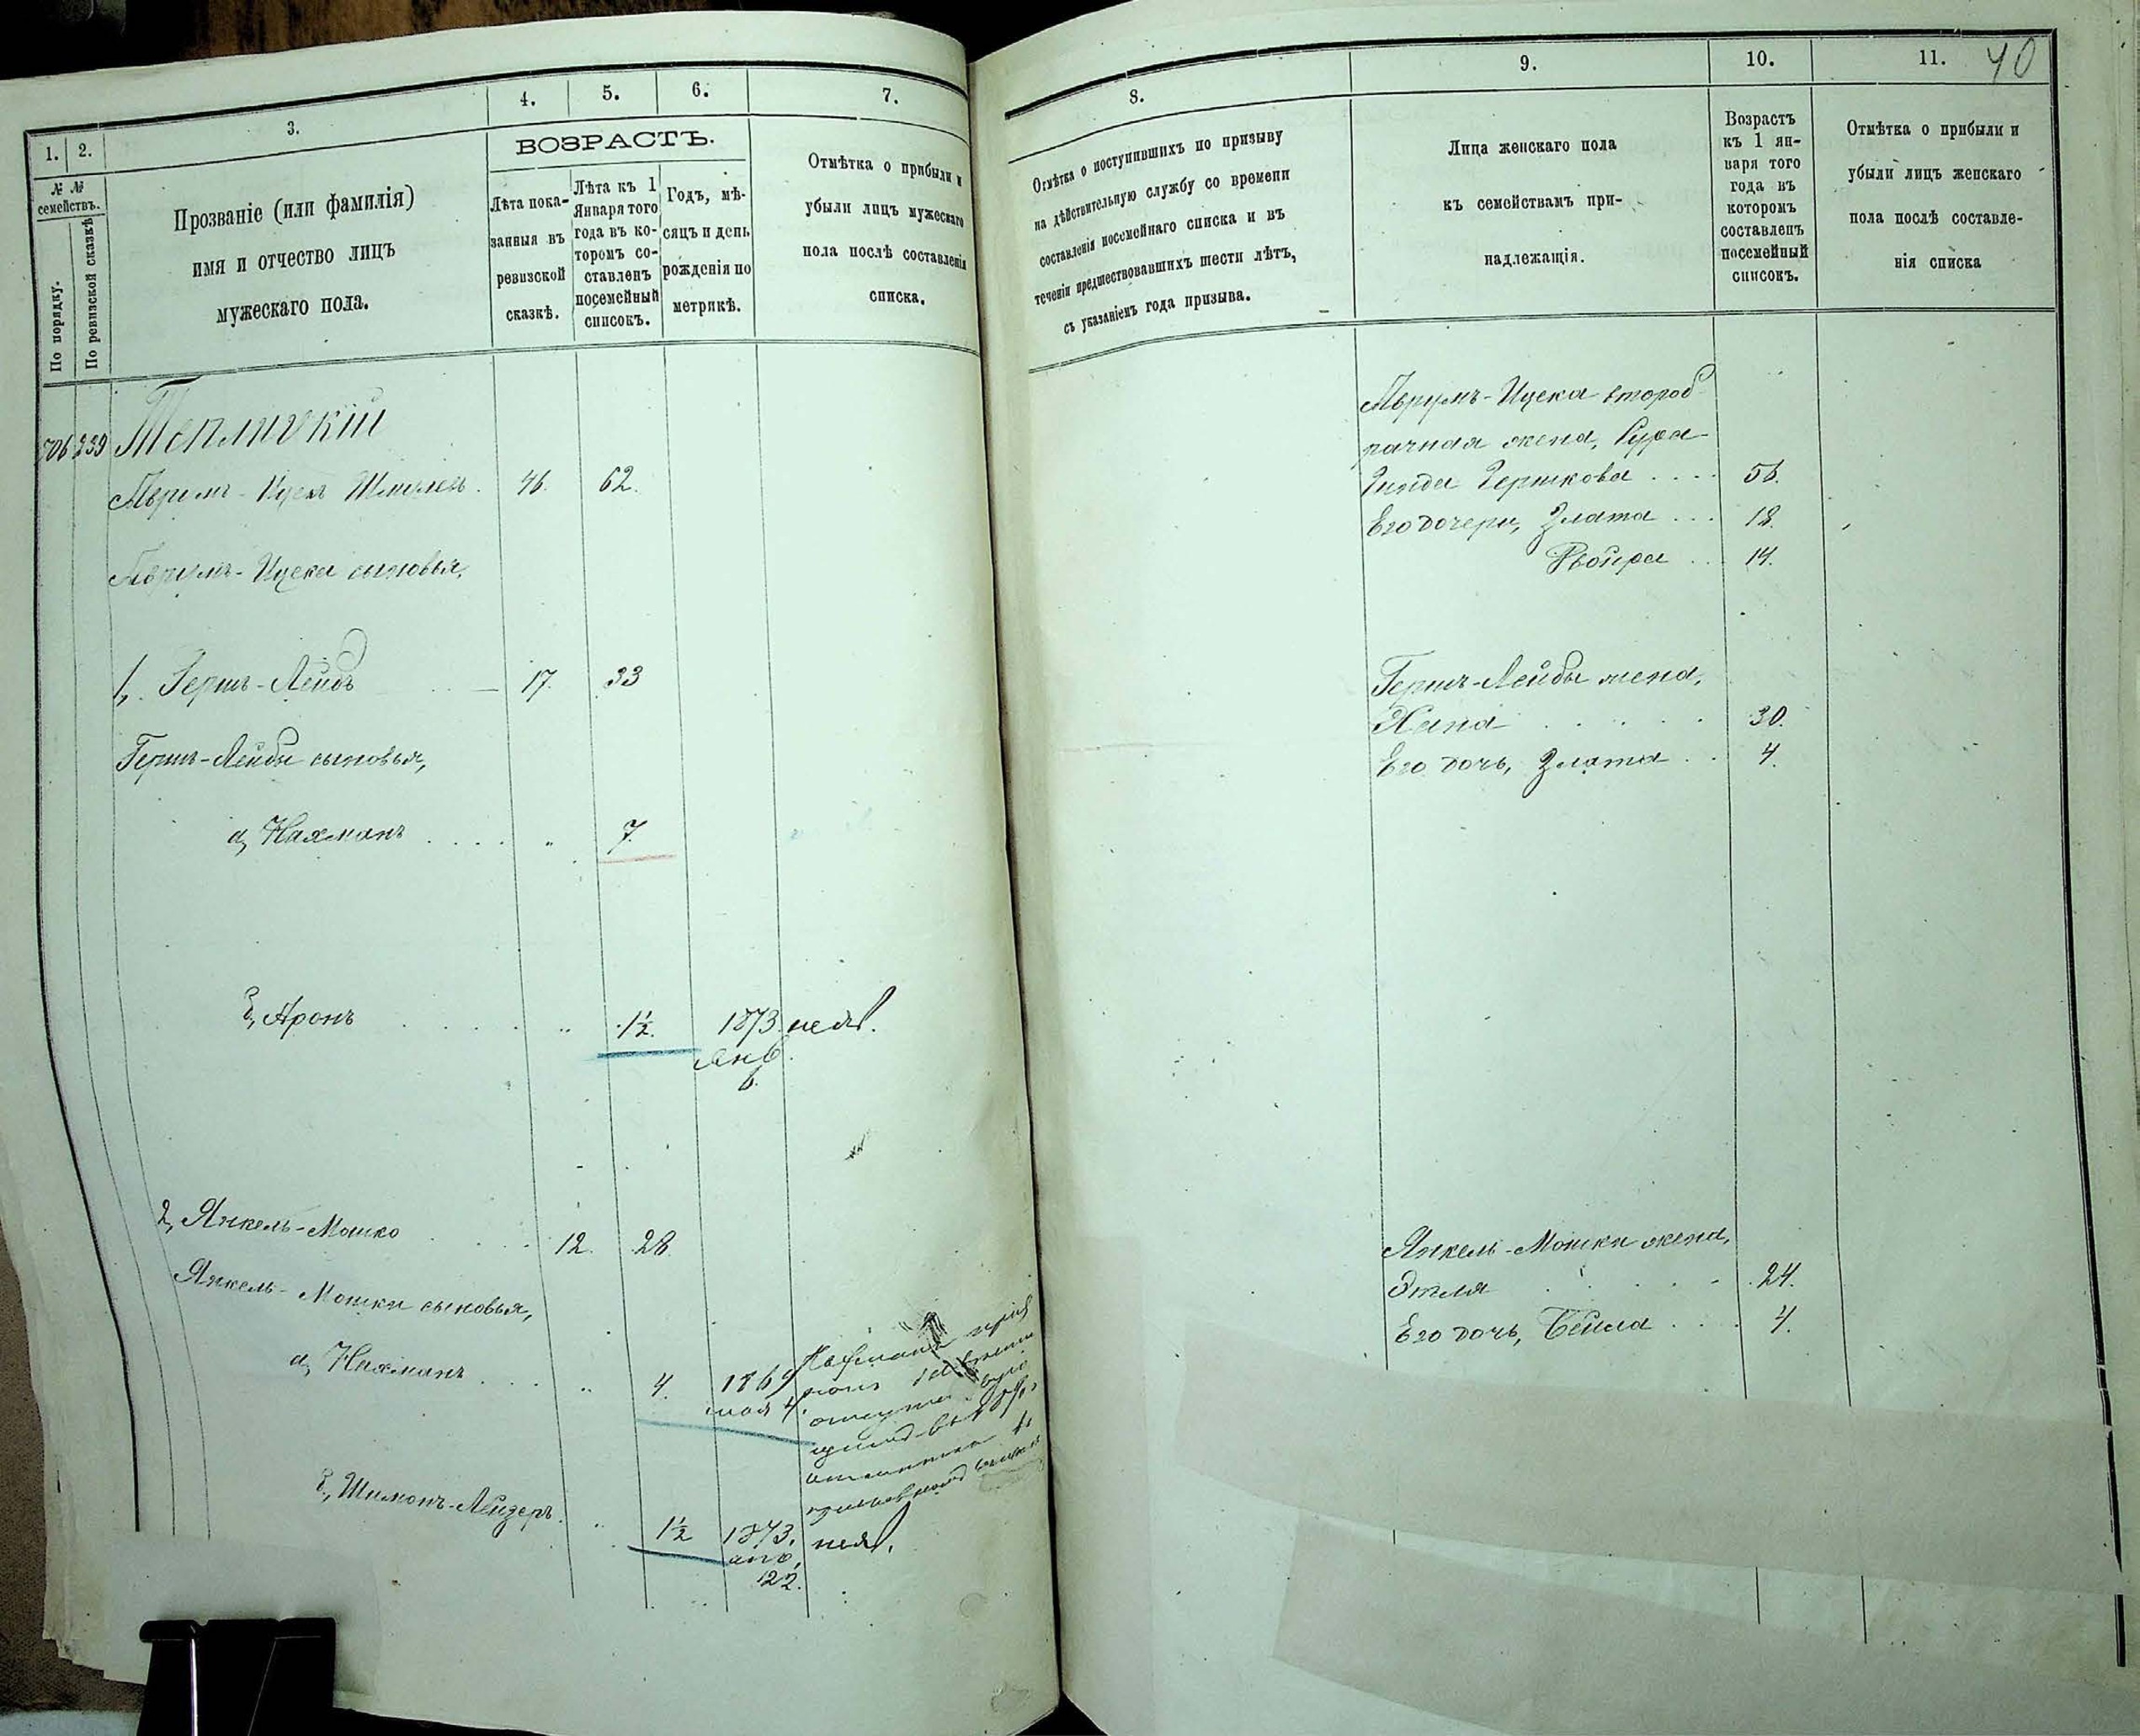 1. 2. 3. 4. 5. 6. 7.
№ №
семействъ.
По порядку.
По ревизской сказкѣ
Прозваніе (или фамилія)
имя и отчество лицъ
мужескаго пола.
ВОЗРАСТЪ.
Лѣта пока-
занныя въ
ревизской
сказкѣ.
Лѣта къ 1
Января того
года въ ко-
торомъ со-
ставленъ
посемейный
списокъ.
Годъ, мѣ-
сяцъ и день
рожденія по
метрикѣ.
Отмѣтка о прибыли и
убыли лицъ мужескаго
пола послѣ составленія
списка.
706 239 Теплицкій
Аврумъ-Ицекъ Шмулев. 46. 62.
Аврумъ-Ицека сыновья,
1, Гершъ-Лейбъ 17. 33
Гершъ-Лейбы сыновья,
а, Нахманъ .... " 7.
б, Аронъ " 1½. 1873. неяв.
Янв.
6.
2, Янкель-Мошко 12. 28
Янкель-Мошки сыновья,
а, Нахманъ ... " 4. 1869
мая 4.
б, Шимонъ-Лейзеръ. " 1½ 1873. неяв.
янв.
22.
8. 9. 10. 11. 40
Отмѣтка о поступившихъ по призыву
на дѣйствительную службу со времени
составленія посемейнаго списка и въ
теченіи предшествовавшихъ шести лѣтъ,
съ указаніемъ года призыва.
Лица женскаго пола
къ семействамъ при-
надлежащія.
Возрастъ
къ 1 ян-
варя того
года въ
которомъ
составленъ
посемейный
списокъ.
Отмѣтка о прибыли и
убыли лицъ женскаго
пола послѣ составле-
нія списка
Аврумъ-Ицека второб
рачная жена, Сура-
Гинда Гершкова .... 56.
Его дочери, Злата ... 18.
Двойра .. 14.
Гершъ-Лейбы жена,
Хана 30.
Его дочь, Злата .. 4.
Янкель-Мошки жена,
Этля 24.
Его дочь, Бейла ... 4.